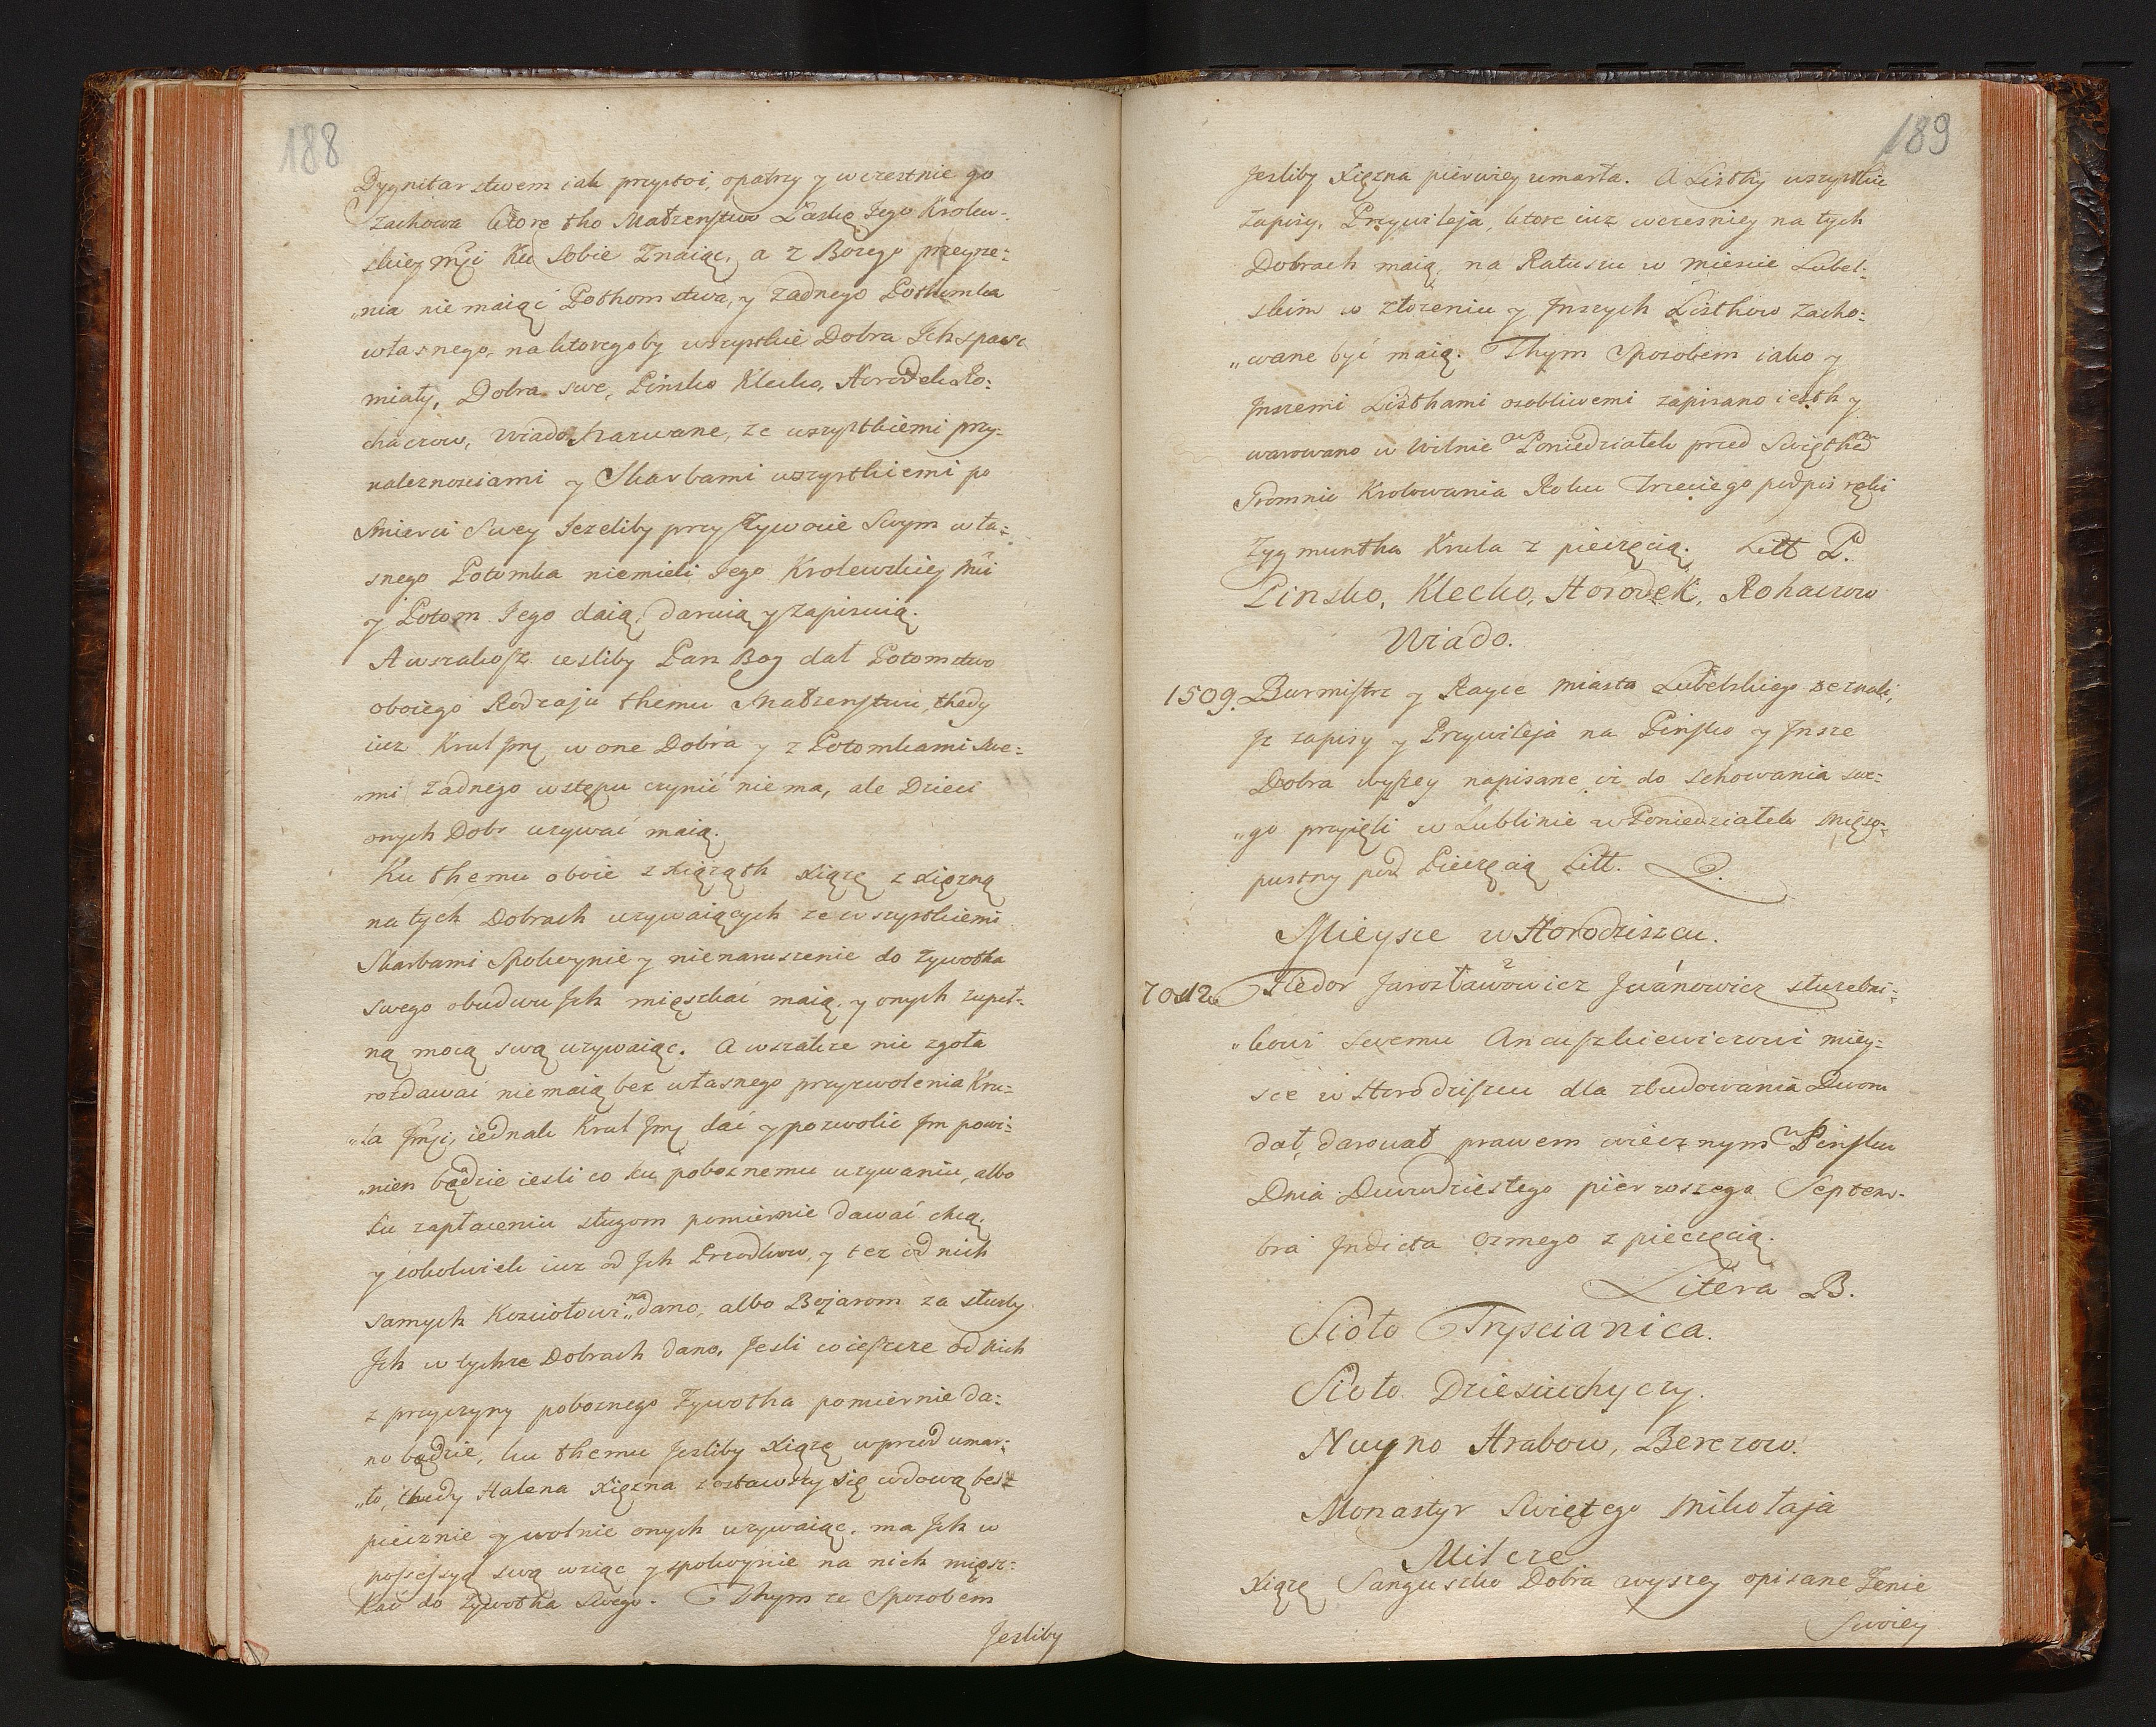 188
Dygnitarstwem iak przystoi, opatrzy y wczestnie go
Zachowa ktore tho Małzenstwo Łaskę Jego Krolew-
skiey Mści Ku Sobie Znaiąc, a z Bozego przeyze:
„nia nie maiąć Pothomstwa, y Zadnego Pothomka
własnego, na ktoregoby wszystkie Dobra Jch spaść
miały, Dobra swe, Pinsko Klecko, Horodek Ro:
chaczow, Wiado Nazwane, ze wszystkiemi przy-
naleznosciami y Skarbami wszystkiemi po
Smierci Swey Jezeliby przy Zywocie Swym wła-
snego Potomka niemieli Jego Krolewskiey Mci
y Potom Jego daią, daruią y zapisuią.
A wszakosz iesliby Pan Bog dał Potomstwo
oboiego Rodzaju themu Małzenstwu, thedy
iuz Krul Jmć w one Dobra y z Potomkami swe:
„mi Zadnego wstępu czynić nie ma, ale Dzieci
onych Dobr uzywać maią.
Ku themu oboie z Xiąząth Xiązę z Xięzną
na tych Dobrach uzywaiących ze wszystkiemi
Skarbami Spokoynie y nienaruszenie do Zywotha
swego obudwu Jch mięszkać maią, y onych zupeł-
ną mocą swą uzywaiąc. A wszakze nic zgoła
rozdawać niemaią bez własnego przyzwolenia Kru=
„la Jmci, iednak Krul Jmć dać y pozwolić Jm powi-
„nien będzie iesli co ku poboznemu uzywaniu, albo
ku zapłaceniu sługom pomiernie dawać chcą,
y cokolwiek iuz od Jch Przodkow, y tez od nich
samych Kosciołowi na„dano, albo Bojarom za słuzby
Jch w tychze Dobrach dano, Jesli co ieszcze od nich
z przyczyny poboznego Zywotha pomiernie da:
no będzie, ku themu Jezliby Xiązę wprzod umar-
„ło, thedy Halena Xięzna zostawszy się wdową bes=
piecznie y wolnie onych uzywaiąc, ma Jch w
possessyą swą wziąc y spokoynie na nich miesz:
kać do Zywotha Swego. Thym ze Sposobem
Jezliby
189
Jezliby Xięzna pierwiey umarła. A Listhy wszystkie
Zapisy, Przywileja, ktore iuz wczesniey na tych
Dobrach maią, na Ratuszu w Miescie Lubel:
skim w złozeniu y Jnszych Listhow zacho:
„wane być maią. Thym Sposobem iako y
Jnszemi Listhami osobliwemi zapisano iesth y
warowano w Wilnie w Poniedziałek przed Swięthem
Gromnic Krolowania Roku Trzeciego podpis ręki
Zygmuntha Krula z pieczęcią. Litt P.
Pinsko, Klecko, Horodek, Rohaczow
Wiado.
1509. Burmistrz y Rayce Miasta Lubelskiego zeznali,
Jz zapisy y Przywileja na Pinsko y Jnsze
Dobra wyszey napisane iz do Schowania swe:
„go przyięli w Lublinie w Poniedziałek Mięso-
pustny pod Pieczęcią Litt. Q.
Mieysce w Horodziszczu.
7012. Fiedor Jarosławowicz Jwánowicz słuzebni:
„kowi swemu Ancuszkiewiczowi miey-
sce w Horodziszczu dla zbudowania Dworu
dał, darował prawem wiecznym w Pinsku
Dnia Dwudziestego pierwszego Septem-
bra Jndicta Osmego z pieczęcią.
Litera B.
Sioło Tryscianica.
Sioło Dziesiuchyczy.
Nuyno Hrabow, Berezow.
Monastyr Swiętego Mikołaja
Milcze
Xiązę Sanguszko Dobra wyszey opisane Zenie
Swoiey